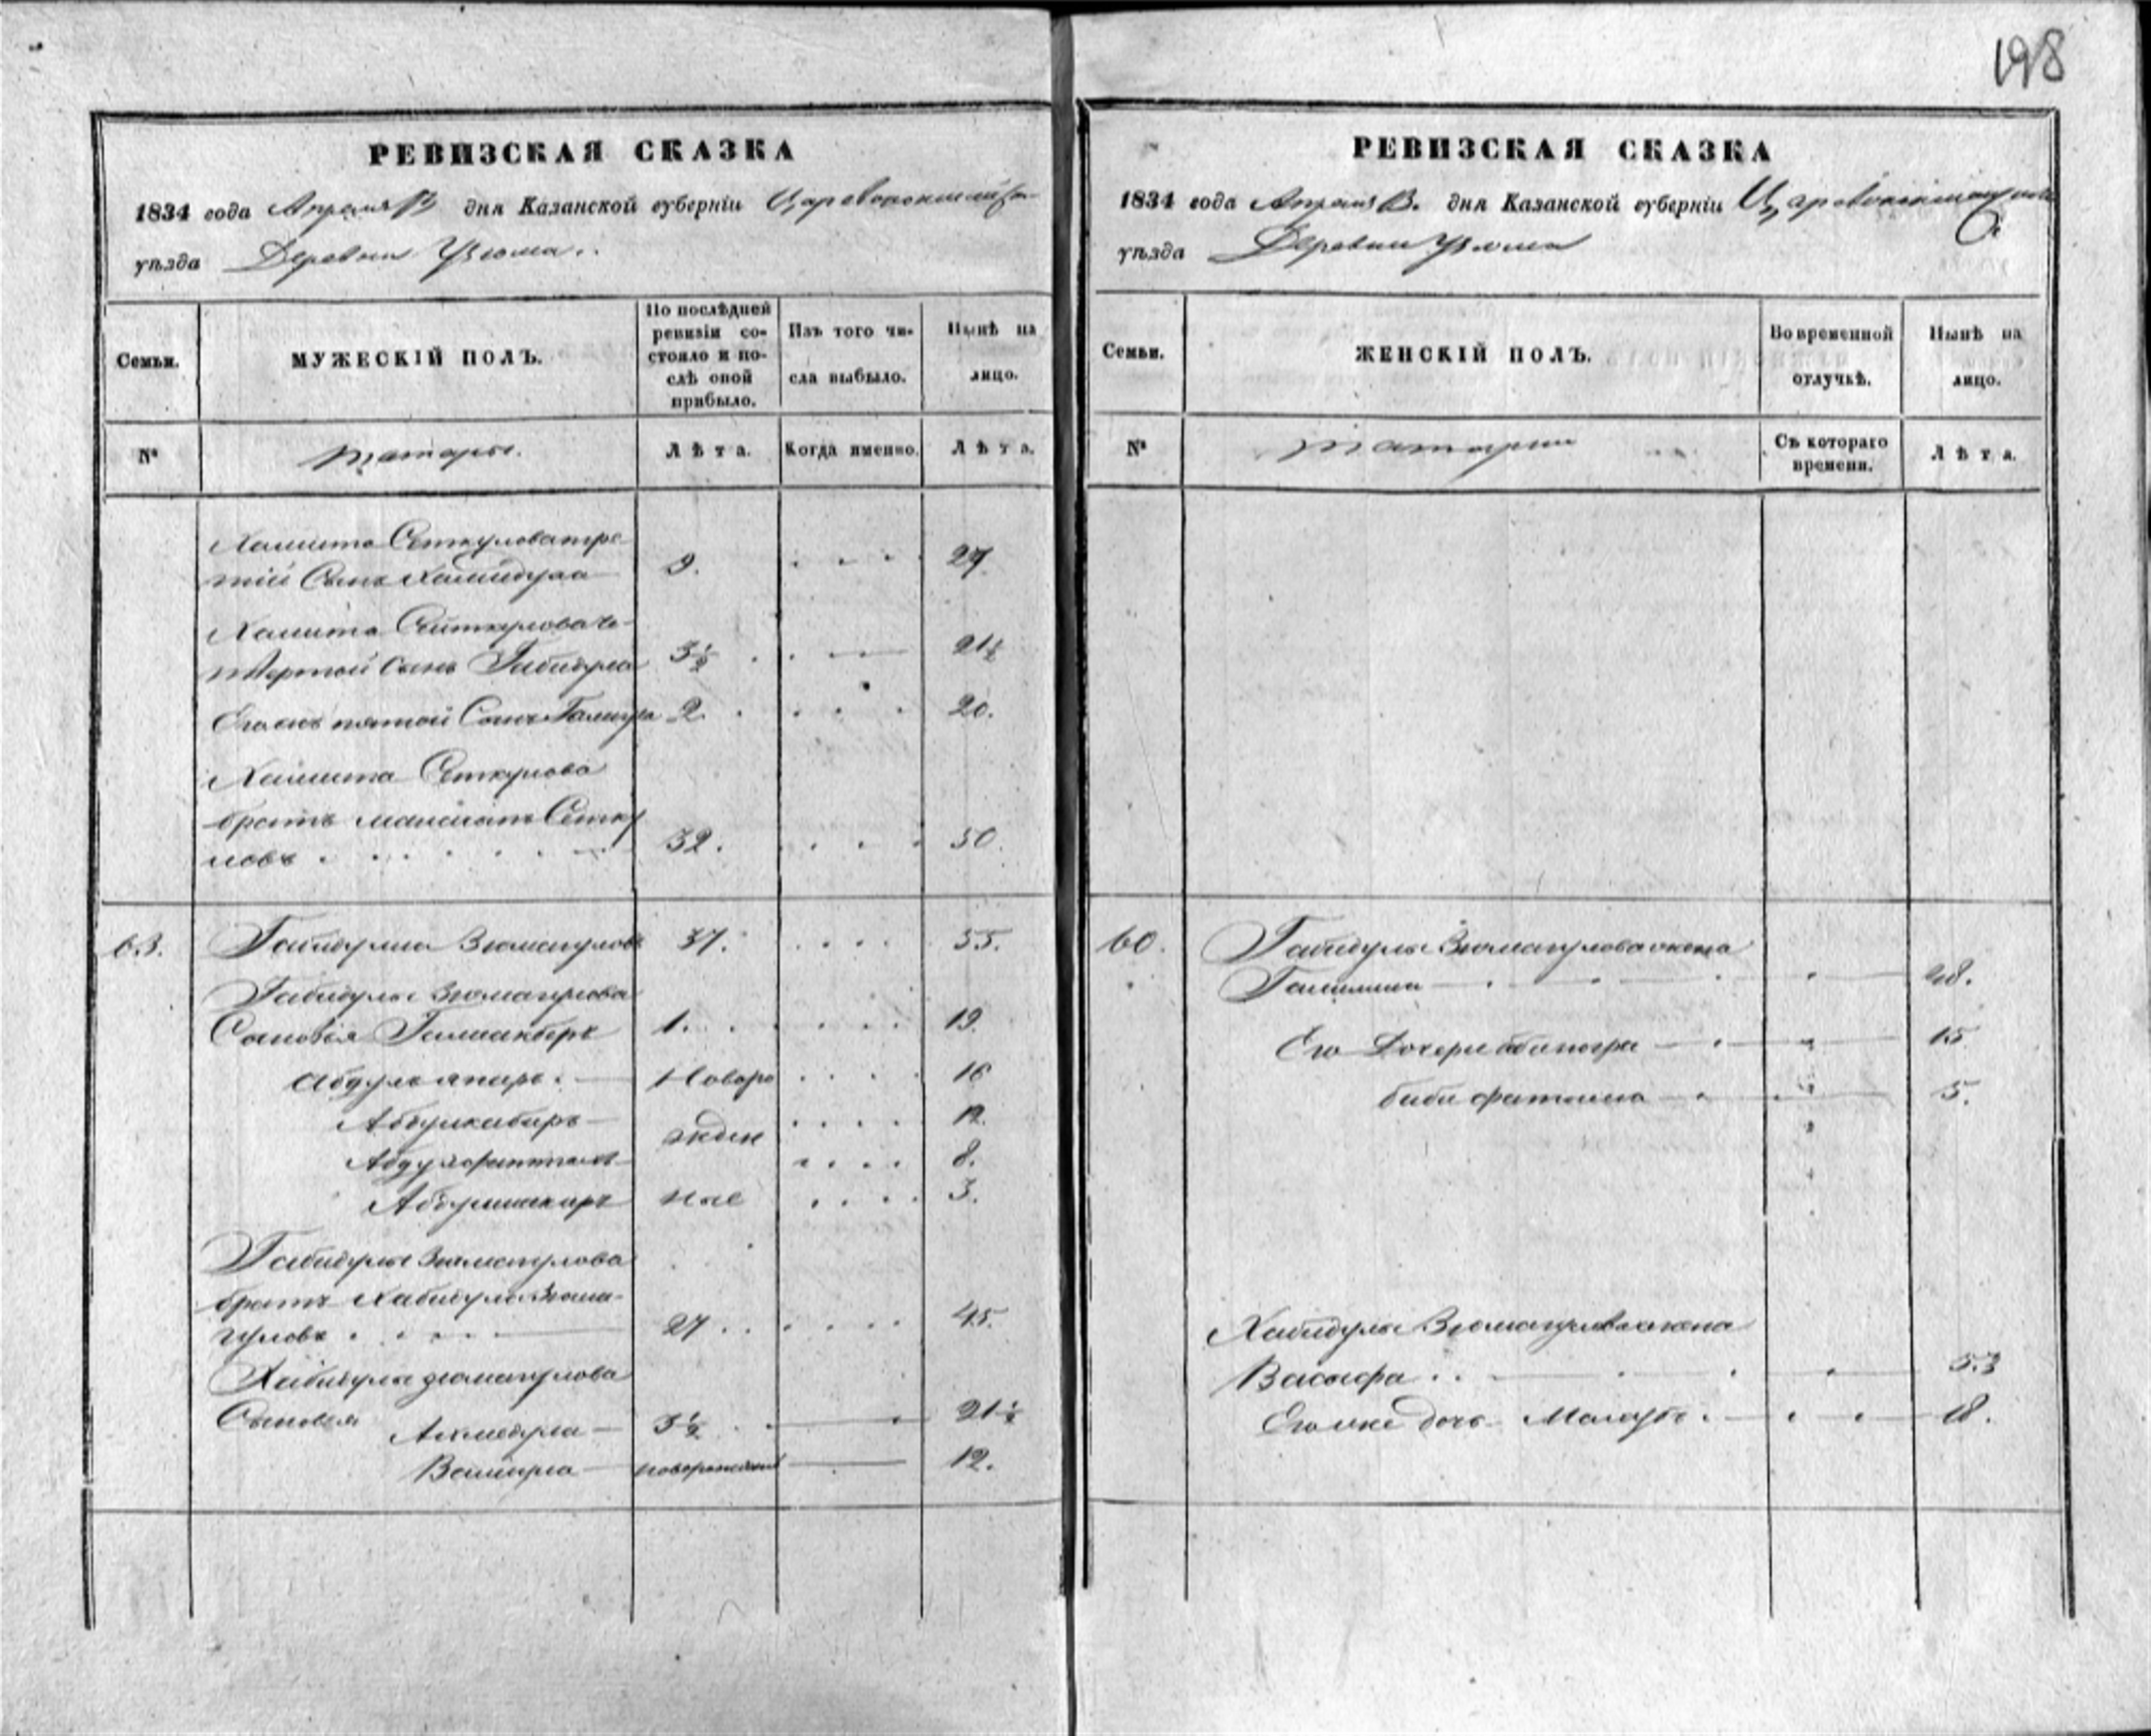 198
РЕВИЗСКАЯ СКАЗКА
1834 года Апреля дня Казанской губерніи
уѣзда Деревни Узюма
Семьи.
МУЖЕСКІЙ ПОЛЪ.
По послѣдней
ревизіи со-
стояло и по-
слѣ оной
прибыло.
Изъ того чи-
сла выбыло.
Нынѣ на
лицо.
№
татары.
Лѣта.
Когда именно.
Лѣта.
Хамита Сеткулова тре-
тій Сынъ Хамидула 9. 27.
Хамита Сейткулова че-
твертой сынъ Габидула 3½ 21½
Его жъ пятой Сынъ 2. 20.
Хамита Сеткулова
братъ Сетку
ловъ 32. 50.
63. Габидулла Зюмагуловъ 37. 55.
Габидулы Зюмагулова
Сыновья Галиакберъ 1. 19.
Новоро 16
Абдулкабиръ 12.
жден
Абдулфаттахъ 8.
Абдулшакуръ ные 3.
Габидулы Зюмагулова
братъ Хабидула Зюма-
гуловъ 27 45.
Хабидулы Зюмагулова
Сыновья
Ахмедула 3½ 21½
Валиула новорожденной 12.
РЕВИЗСКАЯ СКАЗКА
1834 года Апреля дня Казанской губерніи
уѣзда Деревни Узюма
Семьи.
ЖЕНСКІЙ ПОЛЪ.
Во временной
отлучкѣ.
Нынѣ на
лицо.
№
Съ котораго
времени.
Лѣта.
60. Габидулы Зюмагулова жена
48.
Его Дочери 15
биби фатима 5.
Хабидулы Зюмагулова жена
Васыфа 53
Его же дочь 18.